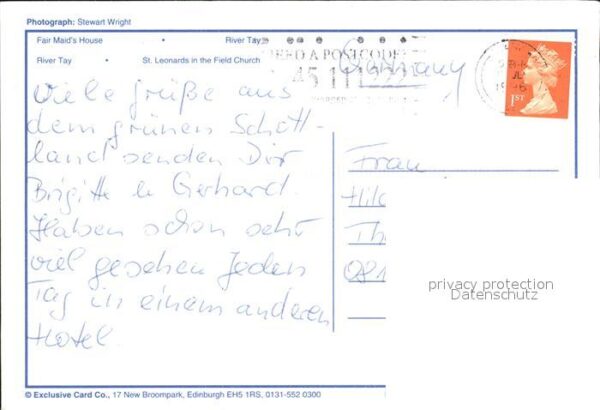 Photograph: Stewart Wright
Fair Maid's House • River Tay
River Tay • St. Leonards in the Field Church
NEED A POSTCODE?
Germany
1ST
Viele Grüße aus
dem grünen Schott-
land senden Dir
Brigitte u Gerhard.
Haben schon sehr
viel gesehen Jeden
Tag in einem anderen
Hotel.
Frau
privacy protection
Datenschutz
© Exclusive Card Co., 17 New Broompark, Edinburgh EH5 1RS, 0131-552 0300